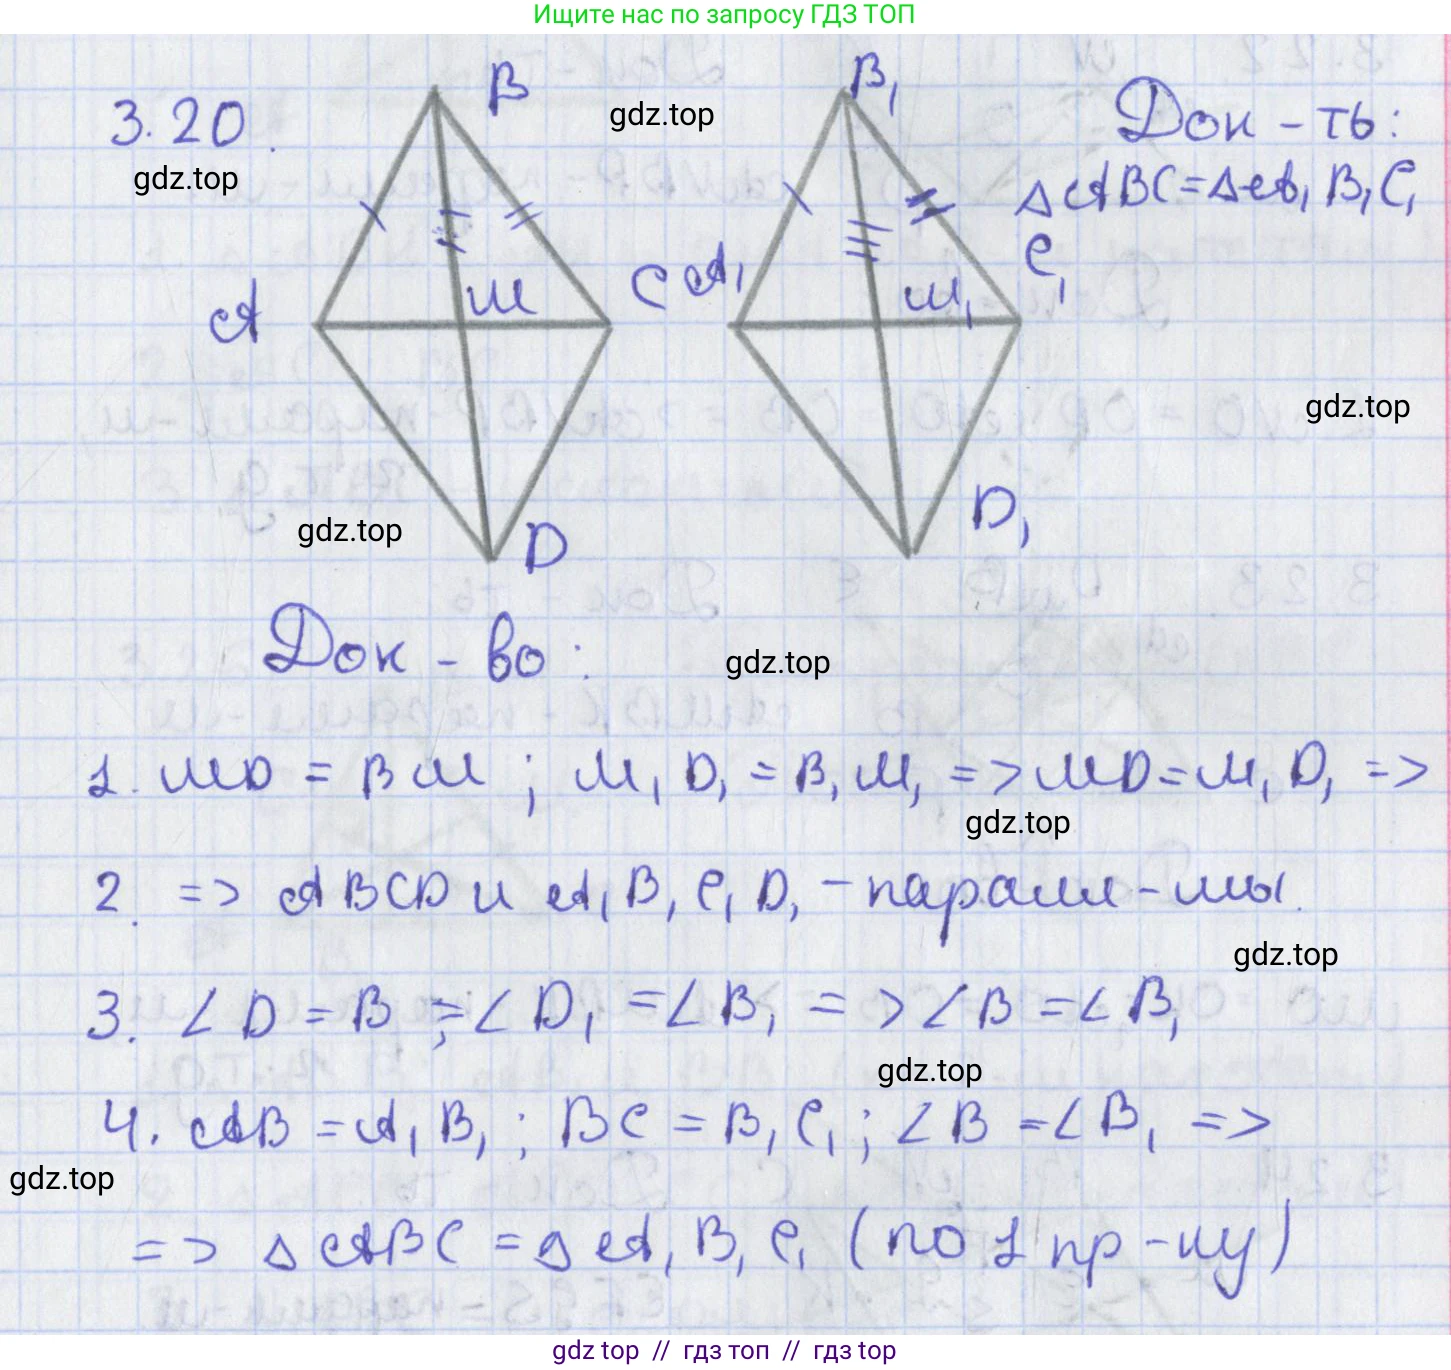 Ищите нас по запросу ГДЗ ТОП
3.20.
gdz.top
B
gdz.top
B₁
Док-ть:
△ABC=△A₁B₁C₁
A
M
C
A₁
M₁
C₁
gdz.top
gdz.top
D
D₁
Док-во:
gdz.top
1. MD = BM ; M₁D₁ = B₁M₁ => MD = M₁D₁ =>
gdz.top
2. => ABCD и A₁B₁C₁D₁ - паралл-мы.
gdz.top
3. ∠D = B ; =∠D₁ = ∠B₁ => ∠B = ∠B₁
gdz.top
4. AB = A₁B₁ ; BC = B₁C₁ ; ∠B = ∠B₁ =>
gdz.top
=> △ABC = △A₁B₁C₁ (по 1 пр-ку)
gdz top // гдз топ // гдз top